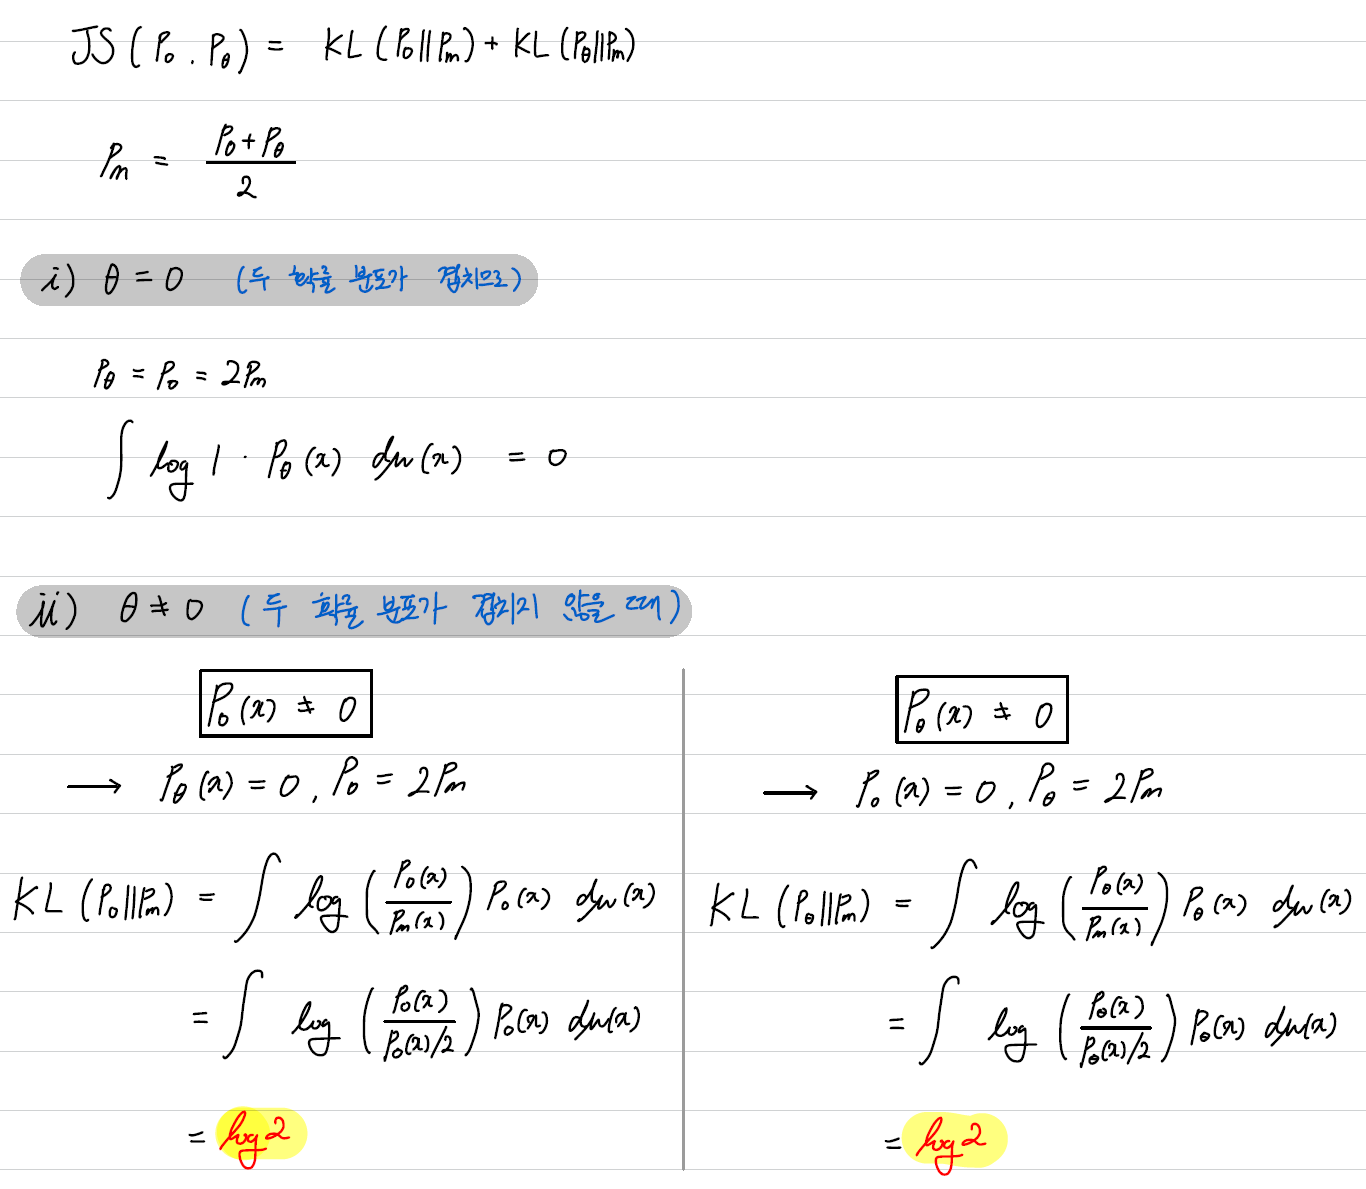 JS(P₀, P_θ) = KL(P₀||P_m) + KL(P_θ||P_m)
P_m = (P₀ + P_θ) / 2
i) θ = 0 (두 확률 분포가 겹치므로)
P_θ = P₀ = 2P_m
∫ log 1 · P_θ(x) dμ(x) = 0
ii) θ ≠ 0 (두 확률 분포가 겹치지 않을 때)
P₀(x) ≠ 0
→ P_θ(x) = 0, P₀ = 2P_m
KL(P₀||P_m) = ∫ log (P₀(x) / P_m(x)) P₀(x) dμ(x)
= ∫ log (P₀(x) / P₀(x)/2) P₀(x) dμ(x)
= log 2
P_θ(x) ≠ 0
→ P₀(x) = 0, P_θ = 2P_m
KL(P_θ||P_m) = ∫ log (P_θ(x) / P_m(x)) P_θ(x) dμ(x)
= ∫ log (P_θ(x) / P_θ(x)/2) P_θ(x) dμ(x)
= log 2